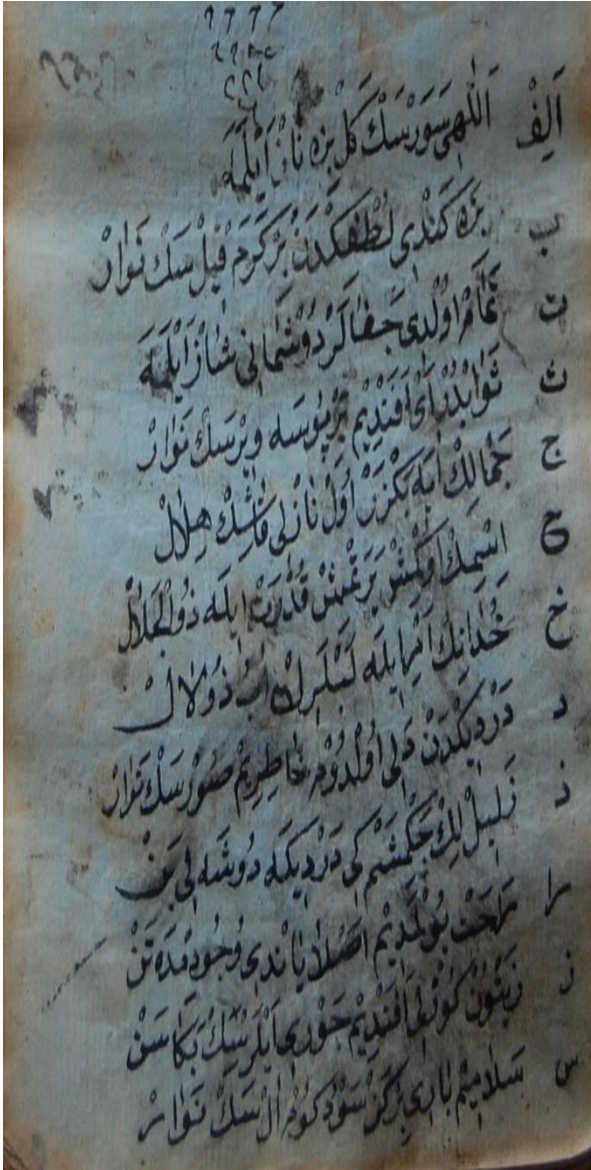 اَلِفْ اَللّٰهِى سَوَرْسَكْ كَلْ بِزَه نَازْ اَيْلَمَه
ب بِزَه كَنْدِى لُطْفِكْدَنْ بَرْ كَرَمْ قِيلْ سَكْ نَوَارْ
ت تَمَامْ اوَلْدِى جَفَالَرْ دُوشْمَانِى شَازْ اَيْلَمَه
ث ثَوَابْدُرْ اَىْ اَفَنْدِيمْ بَرْ بُوسَه وِيرْسَكْ نَوَارْ
ج جَمَالِكْ اَيَه بَكْزَرْ اَوَلْ نَازْلِى قَاشِكْ هِلَالْ
ح اسْمِكْ اُوكْمِشْ يَرَتْمِشْ قُدْرَتْ ايِلَه ذُو الْجَلَالْ
خ خُدَانِكْ اَمْرِ ايلَه لَبْلَرِكْ اَبِ ذُولَالْ
د دَرْدِيكْدَنْ دَلِى اوُلْدُومْ خَاطِرِيمْ صُورْسَكْ نَوَارْ
ذ ذَلِيلْ لِكْ چَكْمِشَمْ كِى دَرْدِيكَه دُوشَه لِى بَنْ
را رَاحَتْ بُولْمَدِيمْ اَصْلَا يَانْدِى وُجُودُمْدَه تَنْ
ز زَيْتُونْ كُوزْلِى اَفَنْدِيمْ جَوْرِى اَيْلَرْسِكْ بَكَا سَنْ
س سَلَامِيمْ بَارِى بِرْكَزْ سَوْدكُومْ اَلْسَكْ نَوَارْ